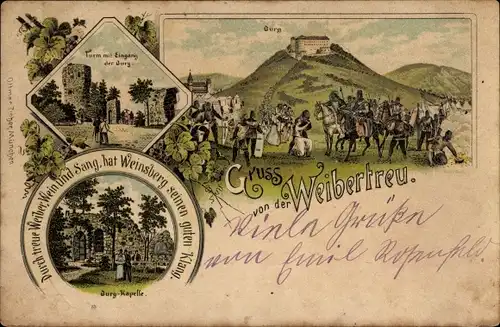 Burg
Turm mit Eingang
der Burg.
Gruss
von der Weibertreu.
Durch treue Weiber, Wein und Sang, hat Weinsberg seinen guten Klang.
Burg-Kapelle.
Viele Grüße
von Emil Rosenfeld.